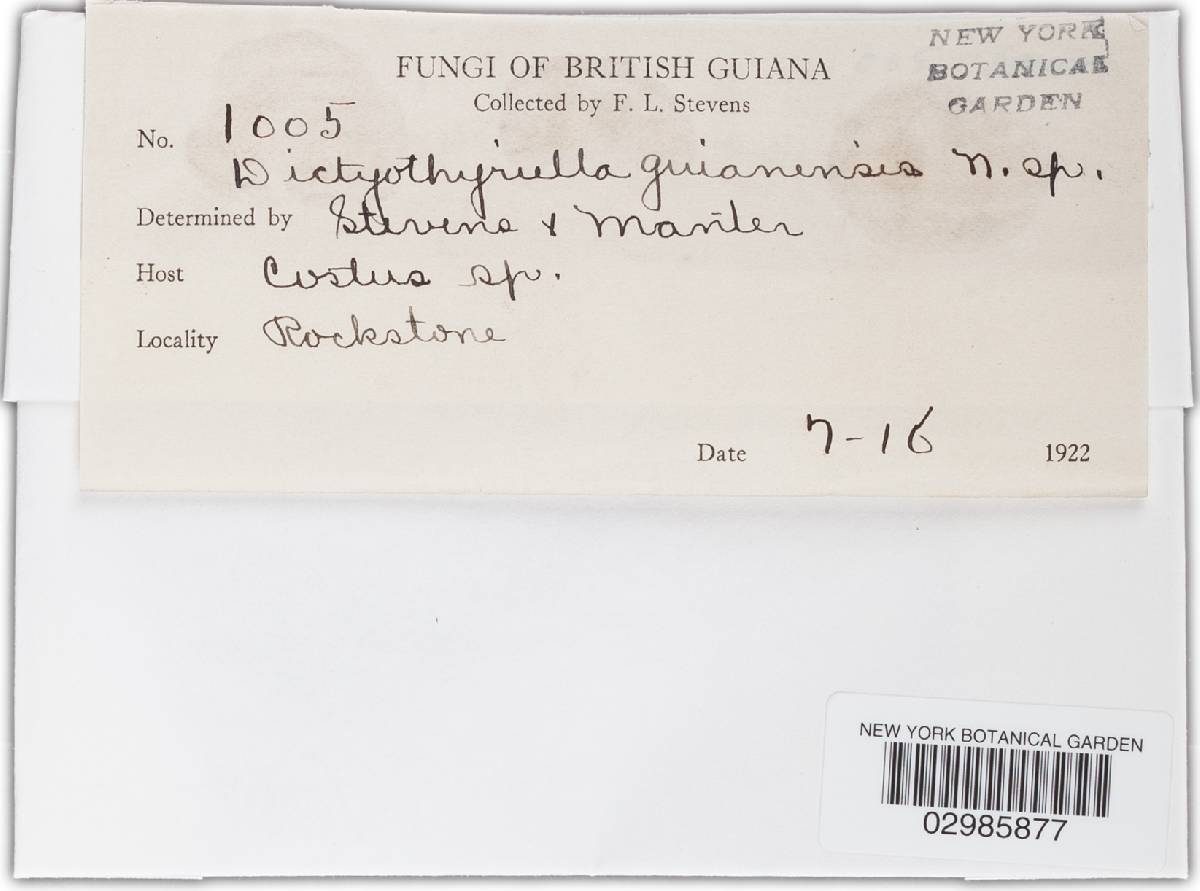 FUNGI OF BRITISH GUIANA
Collected by F. L. Stevens
NEW YORK
BOTANICAL
GARDEN
No. 1005
Dictyothyriella guianensis n. sp.
Determined by Stevens & Manter
Host Costus sp.
Locality Rockstone
Date 7-16 1922
NEW YORK BOTANICAL GARDEN
02985877